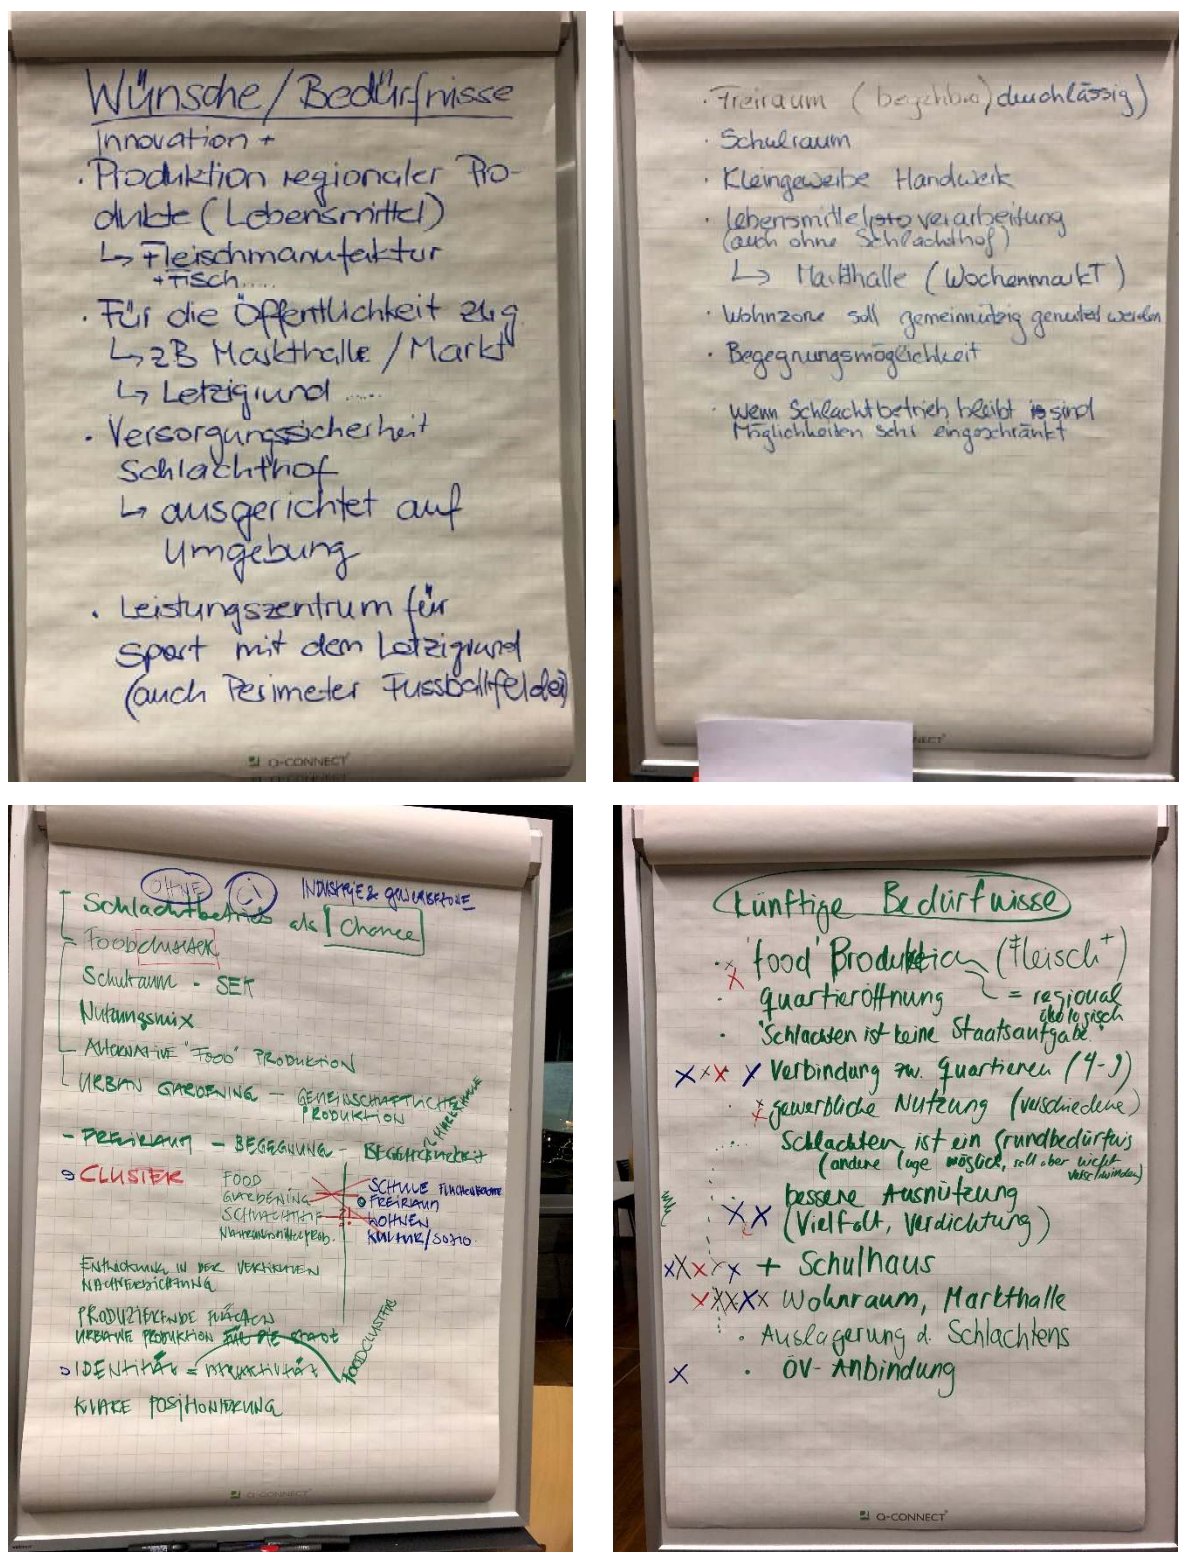 Wünsche/Bedürfnisse
Innovation +
· Produktion regionaler Pro-
dukte (Lebensmittel)
↳ Fleischmanufaktur
+ Fisch.....
· Für die Öffentlichkeit zhg
↳ zB Markthalle / Markt
↳ Letzigrund .....
· Versorgungssicherheit
Schlachthof
↳ ausgerichtet auf
Umgebung
· Leistungszentrum für
Sport mit dem Letzigrund
(auch Perimeter Fussballfelder)
Q-CONNECT
· Freiraum (begehbar) durchlässig)
· Schulraum
· Kleingewerbe Handwerk
· Lebensmittel verarbeitung
(auch ohne Schlachthof)
↳ Markthalle (Wochenmarkt)
· Wohnzone soll gemeinnützig genutzt werden
· Begegnungsmöglichkeit
· Wenn Schlachtbetrieb bleibt sind
Möglichkeiten sehr eingeschränkt
OHNE INDUSTRIE & GEWERBEZONE
Schlachtbetrieb als Chance
- Foodcluster
Schulraum - SEK
Nutzungsmix
- ALTERNATIVE "FOOD" PRODUKTION
URBAN GARDENING - GEMEINSCHAFTLICHE
PRODUKTION
MARKTHALLE
- FREIRAUM - BEGEGNUNG - BEGEHBARKEIT
CLUSTER
FOOD
GARDENING
SCHLACHTHOF
NAHRUNGSMITTELPROD.
SCHULE
FREIRAUM
WOHNEN
KULTUR/SOZIO.
ENTWICKLUNG IN DER VERTIKALEN
NACHVERDICHTUNG
PRODUZIERENDE FLÄCHEN
URBANE PRODUKTION FÜR DIE STADT
IDENTITÄT = ATTRAKTIVITÄT
FOODCLUSTER
KLARE POSITIONIERUNG
Q-CONNECT
Künftige Bedürfnisse
· 'food' Produktion (Fleisch+)
· Quartieröffnung = regional
ökologisch
· "Schlachten ist keine Staatsaufgabe"
Verbindung zw. Quartieren (4-9)
gewerbliche Nutzung (verschiedene)
Schlachten ist ein Grundbedürfnis
(andere Lage möglich, soll aber nicht
verschwinden)
bessere Ausnützung
(Vielfalt, Verdichtung)
+ Schulhaus
Wohnraum, Markthalle
· Auslagerung d. Schlachtens
· ÖV-Anbindung
Q-CONNECT